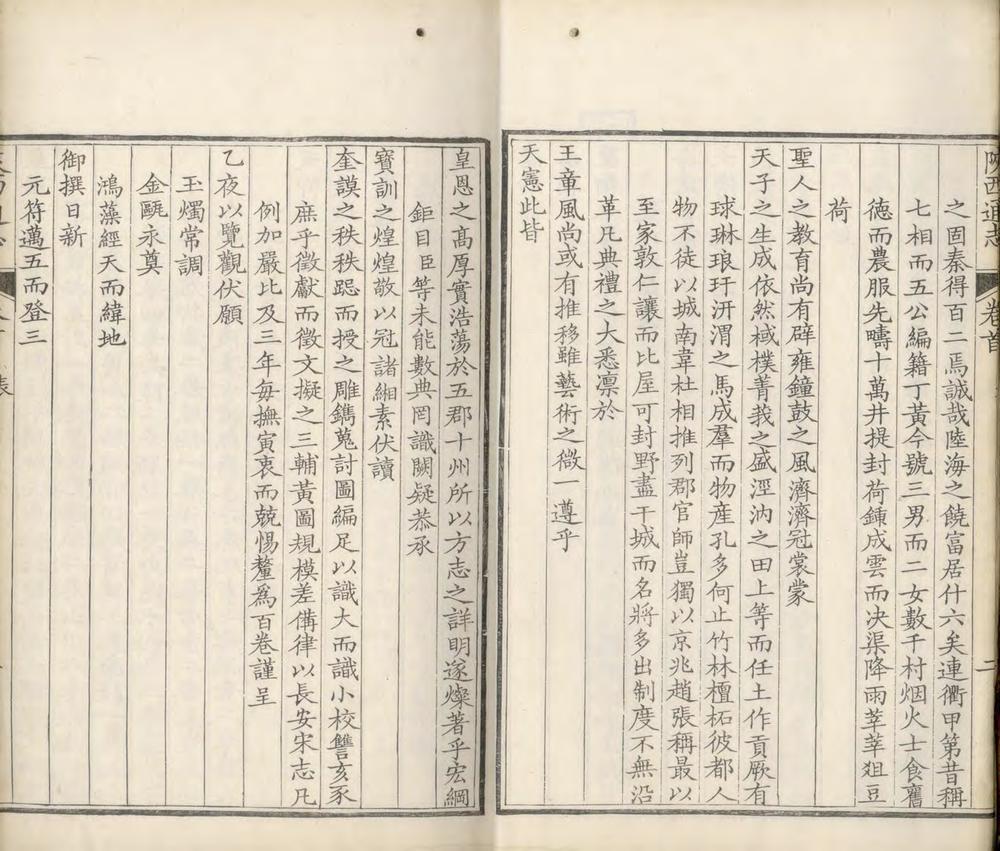 陝西通志 卷首 二
之固秦得百二焉誠哉陸海之饒富居什六矣連衢甲第昔稱
七相而五公編籍丁黃今號三男而二女數千村烟火士食舊
德而農服先疇十萬井提封荷鍤成雲而決渠降雨莘莘俎豆
荷
聖人之教育尚有辟雍鐘鼓之風濟濟冠裳蒙
天子之生成依然棫樸菁莪之盛涇汭之田上等而任土作貢厥有
球琳琅玕汧渭之馬成羣而物產孔多何止竹林檀柘彼都人
物不徒以城南韋杜相推列郡官師豈獨以京兆趙張稱最以
至家敦仁讓而比屋可封野盡干城而名將多出制度不無沿
革凡典禮之大悉凛於
王章風尚或有推移雖藝術之微一遵乎
天憲此皆
皇恩之高厚實浩蕩於五郡十州所以方志之詳明遂燦著乎宏綱
鉅目臣等未能數典罔識闕疑恭承
寶訓之煌煌敬以冠諸緗素伏讀
奎謨之秩秩跽而授之雕鐫蒐討圖編足以識大而識小校讐亥豕
庶乎徵獻而徵文擬之三輔黃圖規模差備律以長安宋志凡
例加嚴比及三年每撫寅衷而兢惕釐為百卷謹呈
乙夜以覽觀伏願
玉燭常調
金甌永奠
鴻藻經天而緯地
御撰日新
元符邁五而登三
表